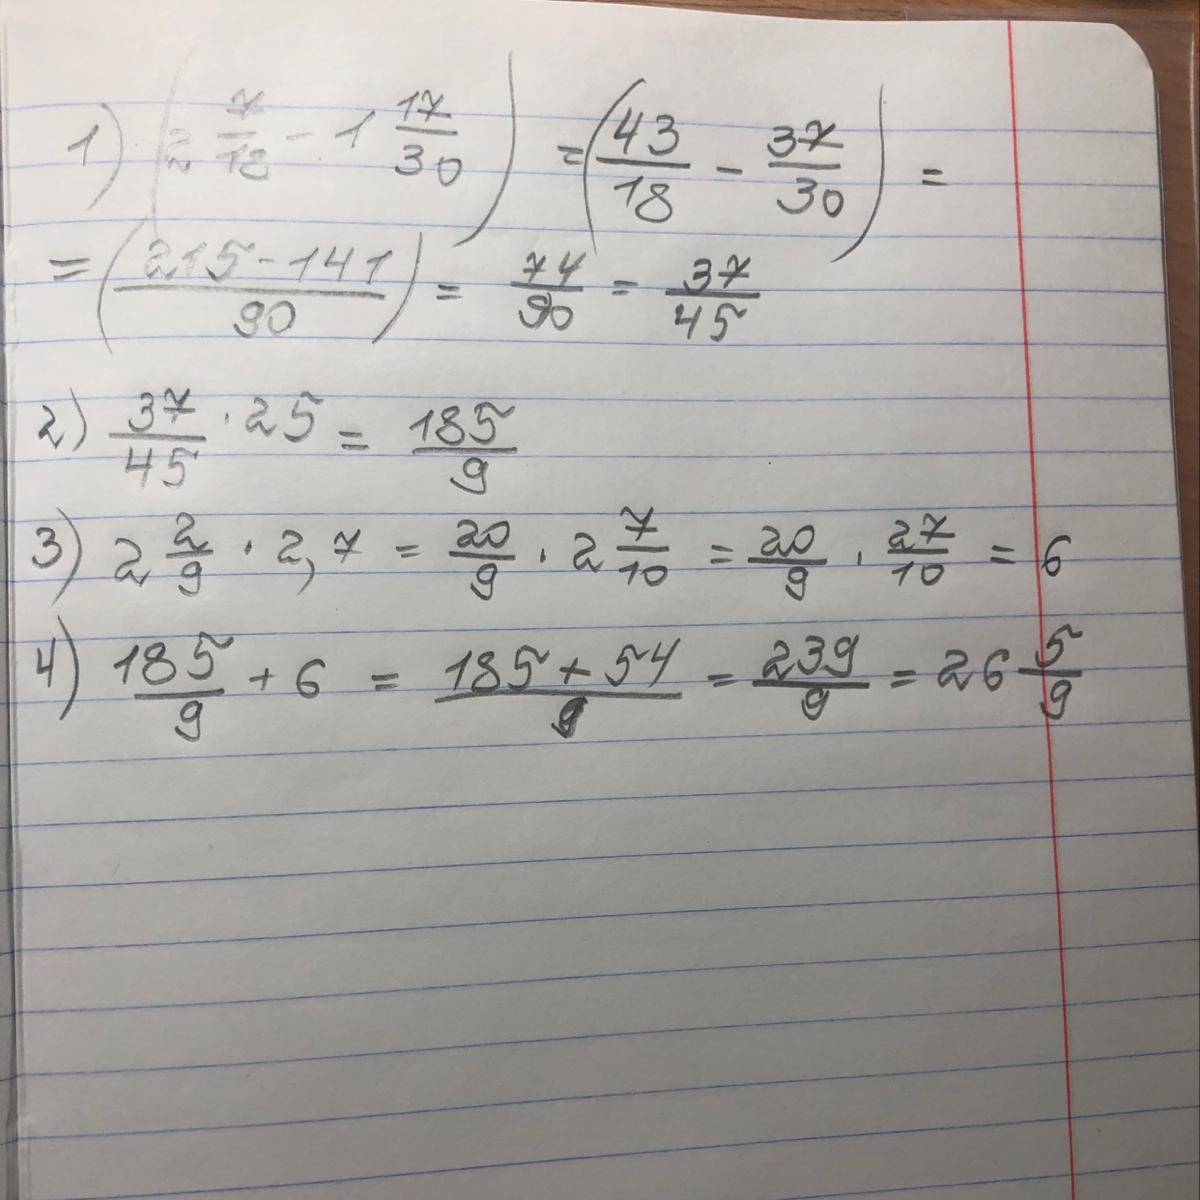 1) (2 7/18 - 1 17/30) = (43/18 - 37/30) =
= (215 - 141/90) = 74/90 = 37/45
2) 37/45 · 25 = 185/9
3) 2 2/9 · 2,7 = 20/9 · 2 7/10 = 20/9 · 27/10 = 6
4) 185/9 + 6 = 185 + 54/9 = 239/9 = 26 5/9